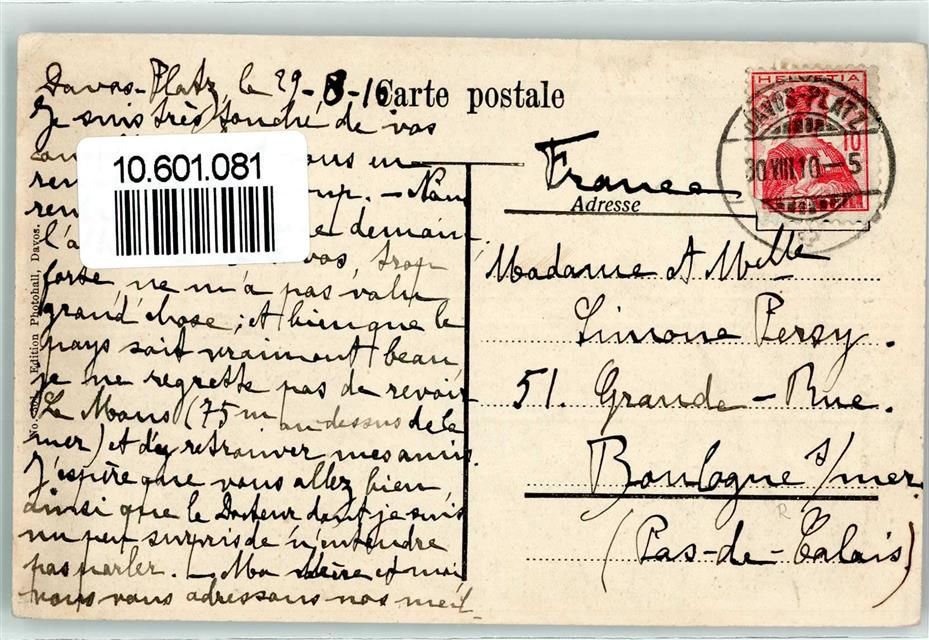 Davos-Platz, le 29-8-10
Carte postale
Je suis très touché de vos
ous en
10.601.081
up. - Nous
l'a e demain
vos, trop
forte, ne m'a pas valu
grand'chose; et bien que le
pays soit vraiment beau,
je ne regrette pas de revoir
Le Mans (75m au dessus de le
mer) et d'y retrouver mes amis.
J'espère que vous allez bien
ainsi que le Docteur dont je suis
un peu surpris de n'entendre
pas parler. - Ma mère et moi
vous vous adressons nos meil
Edition Photohall, Davos.
HELVETIA
10
DAVOS-PLATZ
30.VIII.10.-5
France
Adresse
Madame et Melle
Simone Persy.
51. Grande-Rue.
Boulogne s/mer
(Pas-de-Calais)
R